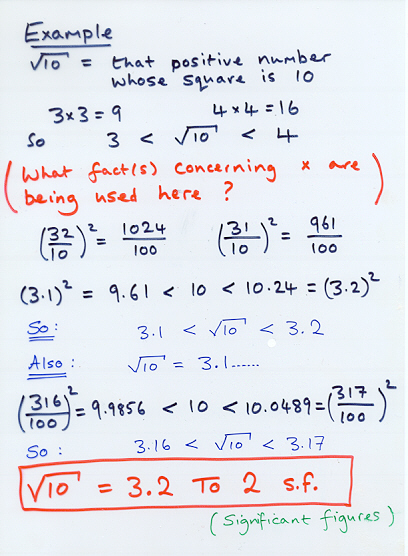 Example
√10 = that positive number
whose square is 10
3×3 = 9 4×4 = 16
So 3 < √10 < 4
(What fact(s) concerning × are
being used here ?)
(32/10)² = 1024/100 (31/10)² = 961/100
(3.1)² = 9.61 < 10 < 10.24 = (3.2)²
So : 3.1 < √10 < 3.2
Also : √10 = 3.1......
(316/100)² = 9.9856 < 10 < 10.0489 = (317/100)²
So : 3.16 < √10 < 3.17
√10 = 3.2 TO 2 s.f.
(Significant figures)